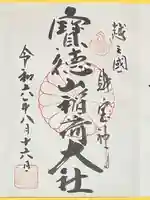 越之國
寶徳山稲荷大社
令和六年八月十六日